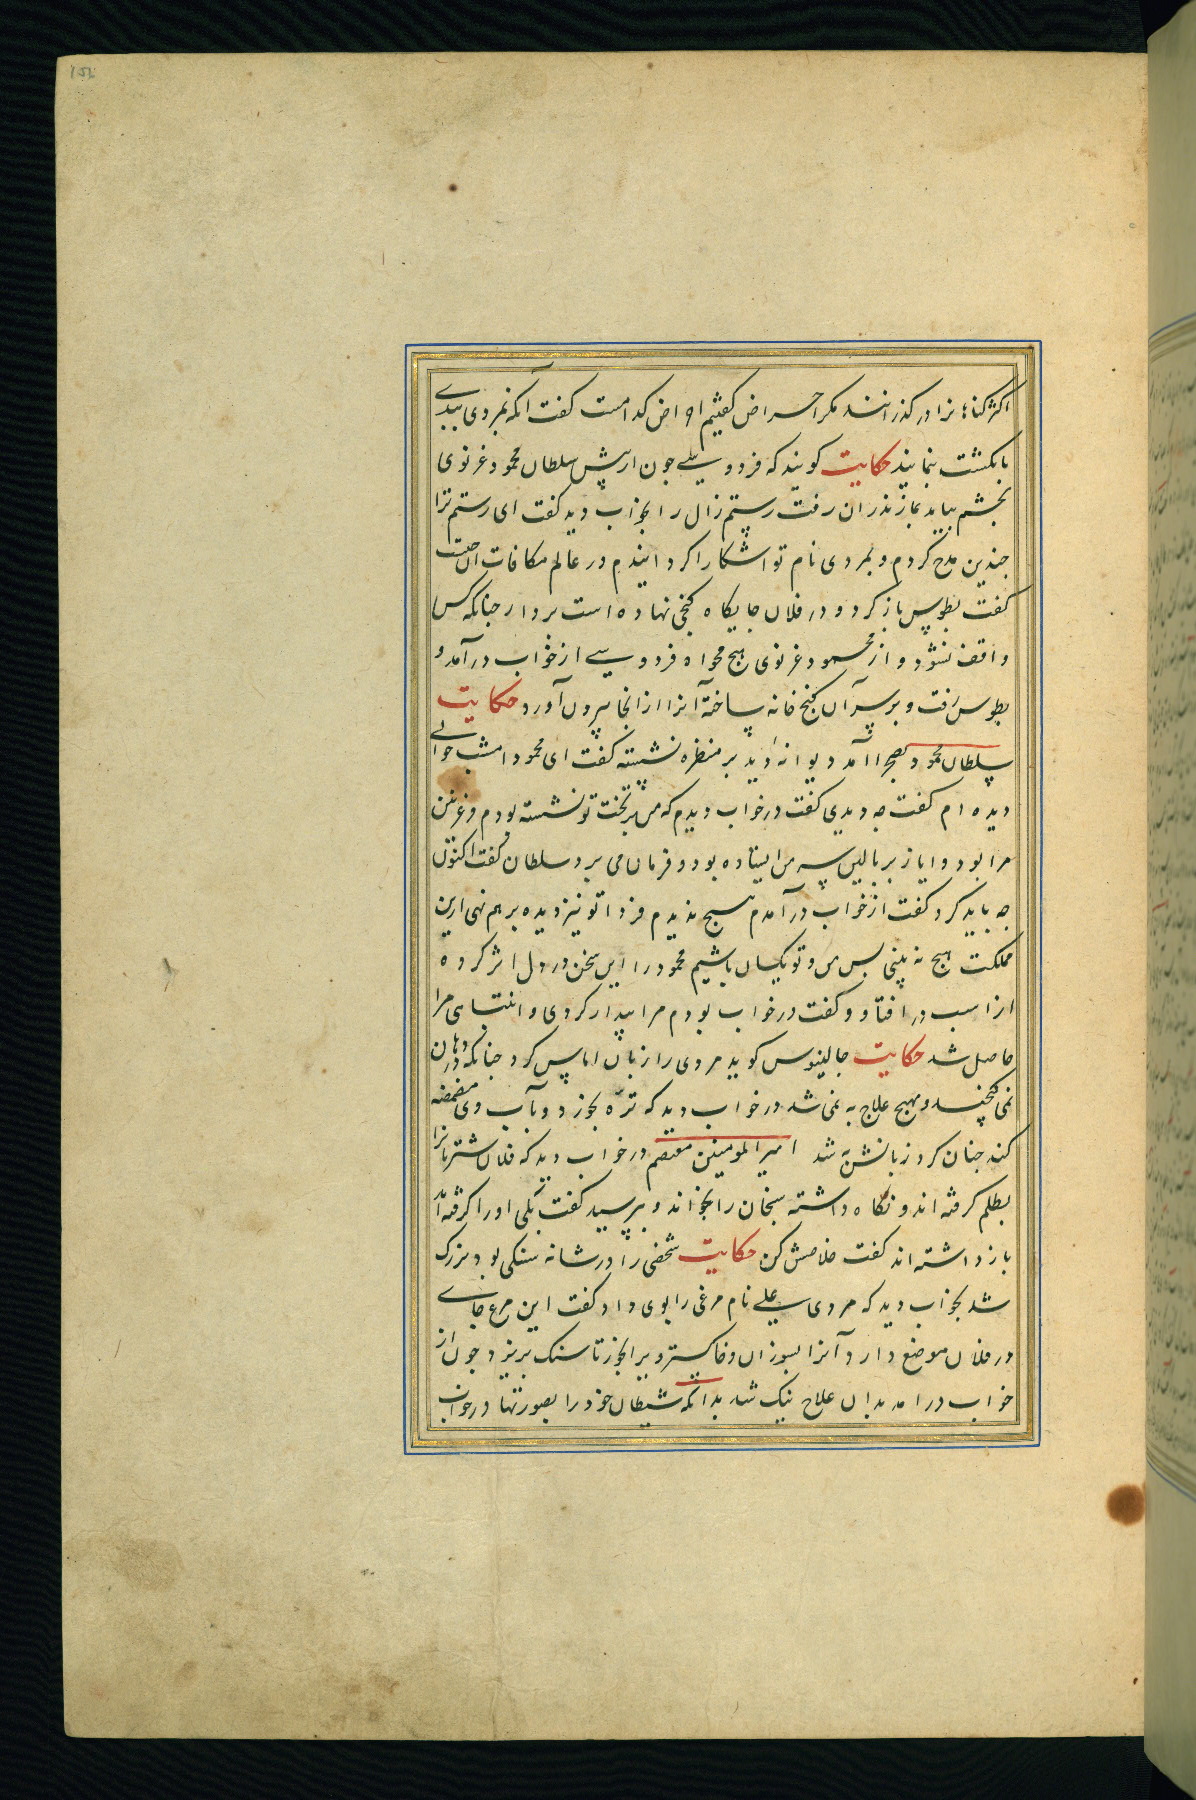 اکثر کناهانرا در کذرانند مکر احراض کفتیم احراض کدامست کفت آنکه بمردی ببدی
بانکشت بنمایند حکایت کویند که فردوسی چون از پیش سلطان محمود غزنوی
بخشم بیامد بمازندران رفت رستم زال را بخواب دید کفت ای رستم ترا
چندین مدح کردم و بمردی نام تو اشکارا کردانیدم در عالم مکافات آن چیست
کفت بطوس باز کرد و در فلان جایکاه کنجی نهاده است بردار چنانکه کس
واقف نشود و از محمود غزنوی هیچ مخواه فردوسی از خواب درآمد و
بطوس رفت و بر سر آن کنج خانه ساخته آنرا از انجا بیرون آورد حکایت
سلطان محمود بصحرا آمد دیوانه دید بر منظره نشسته کفت ای محمود امشب خوابی
دیده ام کفت چه دیدی کفت در خواب دیدم که من بر تخت تو نشسته بودم و غزنین
مرا بود و ایاز بر بالین سر من ایستاده بود و فرمان می برد سلطان کفت اکنون
چه باید کرد کفت از خواب درآمدم هیچ ندیدم فردا تو نیز دیده بر هم نهی ازین
مملکت هیچ نه بینی پس من و تو یکسان باشیم محمود را این سخن در دل اثر کرده
از اسب در افتاد و کفت در خواب بودم مرا بیدار کردی و انتباهی مرا
حاصل شد حکایت جالینوس کوید مردی را زبان اماس کرد چنانکه در دهان
نمی کنجید و بهیچ علاج به نمی شد در خواب دید که تره بخورد و بآب وی مضمضه
کند چنان کرد زبانش به شد امیر المومنین معتصم در خواب دید که فلان شتربانرا
بظلم کرفته اند و نکاه داشته سبحان را بخواند و بپرسید کفت بلی او را کرفته اند
باز داشته اند کفت خلاصش کن حکایت شخصی را در شانه سنکی بود بزرک
شد بخواب دید که مردی علی نام مرغی را بوی داد کفت این مرغ جای
در فلان موضع دارد آنرا بسوزان و خاکستر ویرا بخور تا سنک بریزد چون از
خواب درامد بدان علاج نیک شد بدانکه شیطان خود را بصورتها در خواب